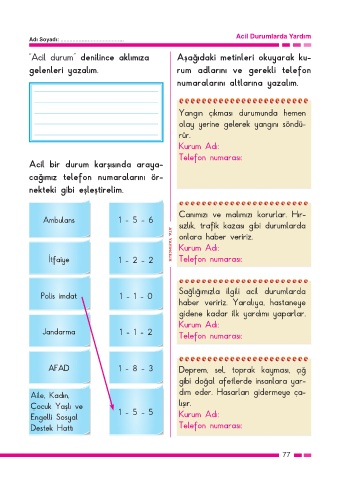 Adı Soyadı: ...................................
Acil Durumlarda Yardım
"Acil durum" denilince aklımıza
gelenleri yazalım.
Acil bir durum karşısında araya-
cağımız telefon numaralarını ör-
nekteki gibi eşleştirelim.
Ambulans
1 - 5 - 6
İtfaiye
1 - 2 - 2
Polis imdat
1 - 1 - 0
Jandarma
1 - 1 - 2
AFAD
1 - 8 - 3
Aile, Kadın,
Çocuk Yaşlı ve
Engelli Sosyal
Destek Hattı
1 - 5 - 5
Aşağıdaki metinleri okuyarak ku-
rum adlarını ve gerekli telefon
numaralarını altlarına yazalım.
Yangın çıkması durumunda hemen
olay yerine gelerek yangını söndü-
rür.
Kurum Adı:
Telefon numarası:
Canımızı ve malımızı korurlar. Hır-
sızlık, trafik kazası gibi durumlarda
onlara haber veririz.
Kurum Adı:
Telefon numarası:
Sağlığımızla ilgili acil durumlarda
haber veririz. Yaralıya, hastaneye
gidene kadar ilk yardımı yaparlar.
Kurum Adı:
Telefon numarası:
Deprem, sel, toprak kayması, çığ
gibi doğal afetlerde insanlara yar-
dım eder. Hasarları gidermeye ça-
lışır.
Kurum Adı:
Telefon numarası:
77